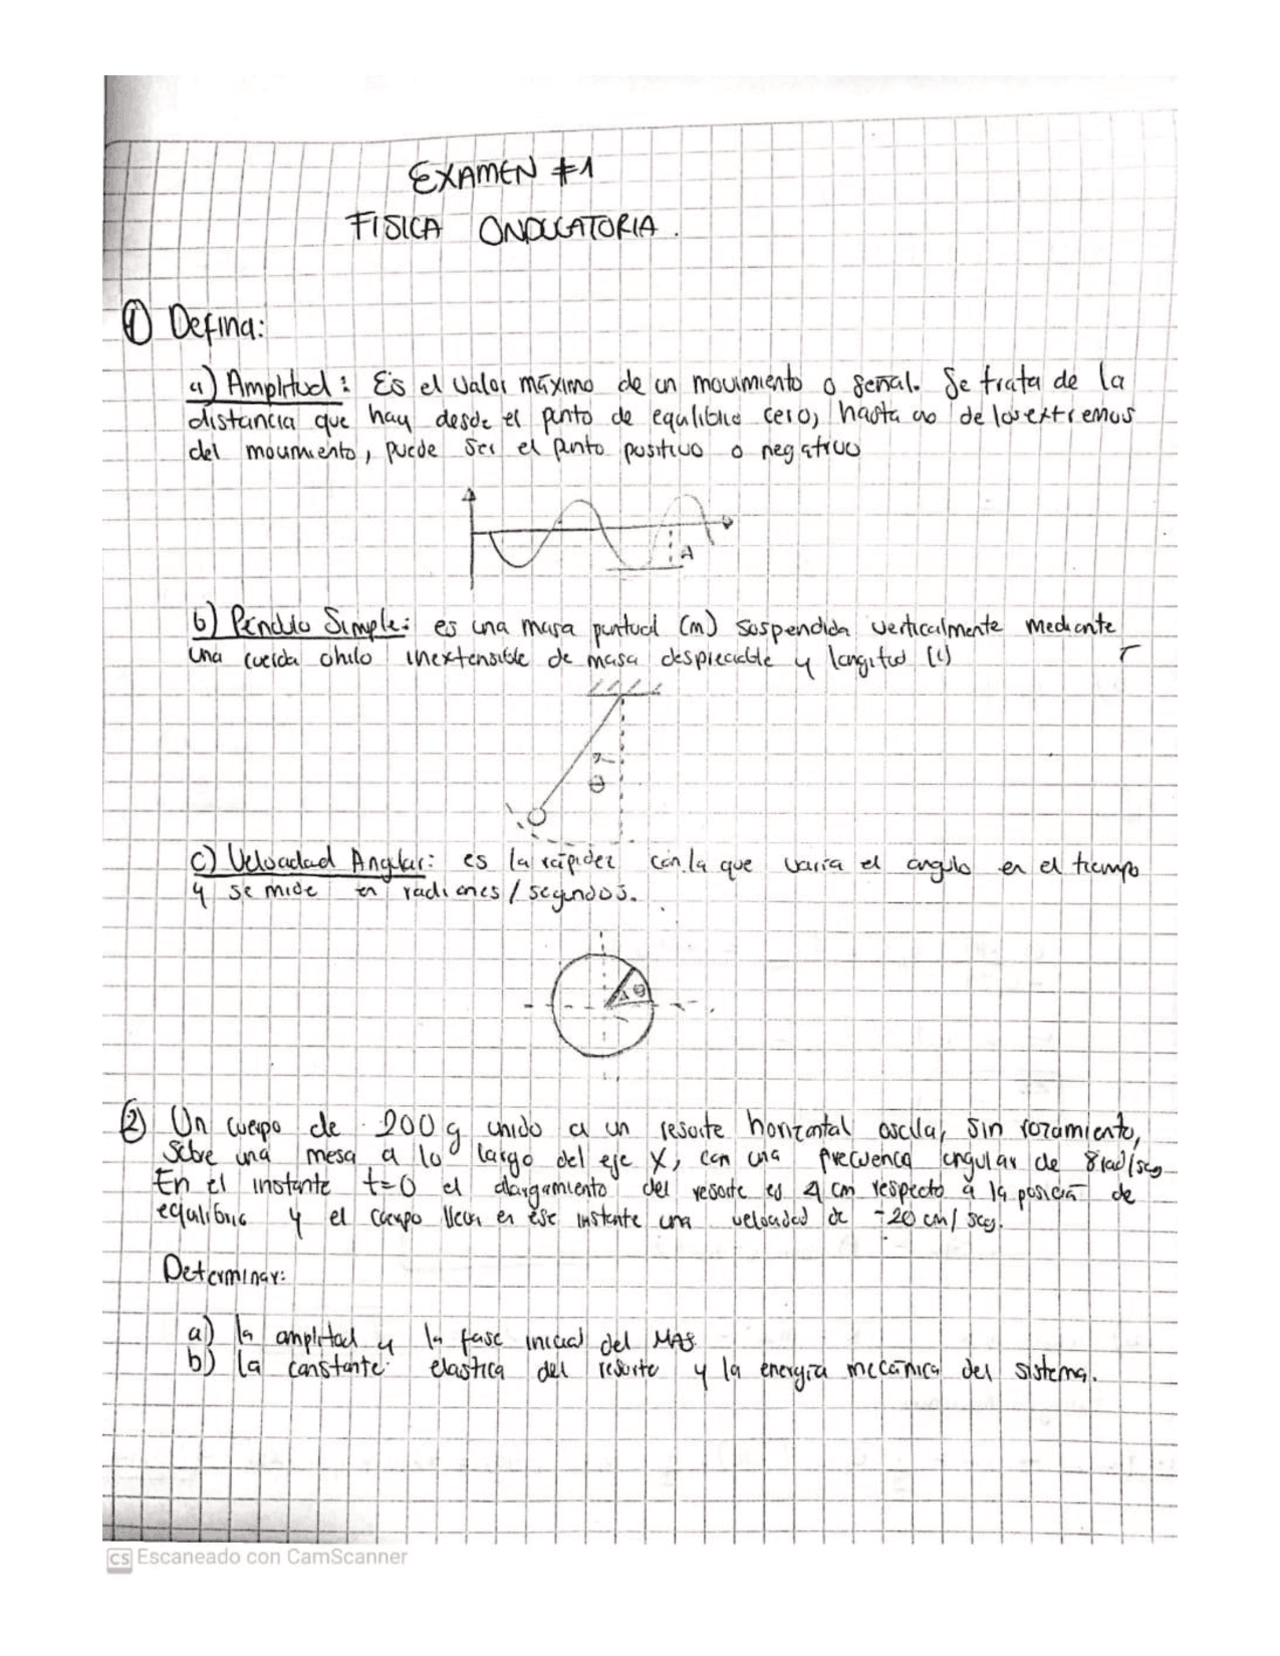 EXAMEN #1
FISICA ONDULATORIA.
① Defina:
a) Amplitud: Es el valor máximo de un movimiento o señal. Se trata de la
distancia que hay desde el punto de equilibrio cero, hasta uno de los extremos
del movimiento, puede ser el punto positivo o negativo
A
b) Pendulo Simple: es una masa puntual (m) suspendida verticalmente mediante
una cuerda o hilo inextensible de masa despreciable y longitud (L)
θ
c) Velocidad Angular: es la rapidez con la que varia el angulo en el tiempo
y se mide en radianes/segundos.
Δθ
② Un cuerpo de 200g unido a un resorte horizontal oscila, sin rozamiento,
sobre una mesa a lo largo del eje X, con una frecuencia angular de 8 rad/seg
En el instante t=0 el alargamiento del resorte es 4 cm respecto a la posición de
equilibrio y el cuerpo lleva en ese instante una velocidad de -20 cm/seg.
Determinar:
a) la amplitud y la fase inicial del MAS
b) la constante elastica del resorte y la energía mecánica del sistema.
CS Escaneado con CamScanner